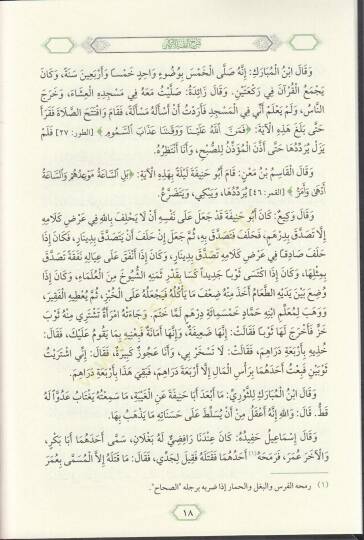 وَقَالَ ابْنُ الْمُبَارَكِ: إِنَّهُ صَلَّى الْخَمْسَ بِوُضُوءٍ وَاحِدٍ خَمْسًا وَأَرْبَعِينَ سَنَةً، وَكَانَ
يَجْمَعُ الْقُرْآنَ فِي رَكْعَتَيْنِ. وَقَالَ زَائِدَةُ: صَلَّيْتُ مَعَهُ فِي مَسْجِدِهِ الْعِشَاءَ، وَخَرَجَ
النَّاسُ، وَلَمْ يَعْلَمْ أَنِّي فِي الْمَسْجِدِ فَأَرَدْتُ أَنْ أَسْأَلَهُ مَسْأَلَةً، فَقَامَ وَافْتَتَحَ الصَّلَاةَ فَقَرَأَ
حَتَّى بَلَغَ هَذِهِ الْآيَةَ: ﴿فَمَنَّ اللَّهُ عَلَيْنَا وَوَقَانَا عَذَابَ السَّمُومِ﴾ [الطور: ٢٧] فَلَمْ
يَزَلْ يُرَدِّدُهَا حَتَّى أَذَّنَ الْمُؤَذِّنُ لِلصُّبْحِ، وَأَنَا أَنْتَظِرُهُ.
وَقَالَ الْقَاسِمُ بْنُ مَعْنٍ: قَامَ أَبُو حَنِيفَةَ لَيْلَةً بِهَذِهِ الْآيَةِ: ﴿بَلِ السَّاعَةُ مَوْعِدُهُمْ وَالسَّاعَةُ
أَدْهَى وَأَمَرُّ﴾ [القمر: ٤٦] يُرَدِّدُهَا، وَيَبْكِي، وَيَتَضَرَّعُ.
وَقَالَ وَكِيعٌ: كَانَ أَبُو حَنِيفَةَ قَدْ جَعَلَ عَلَى نَفْسِهِ أَنْ لَا يَحْلِفَ بِاللَّهِ فِي عُرْضِ كَلَامِهِ
إِلَّا تَصَدَّقَ بِدِرْهَمٍ، فَحَلَفَ فَتَصَدَّقَ بِهِ، ثُمَّ جَعَلَ إِنْ حَلَفَ أَنْ يَتَصَدَّقَ بِدِينَارٍ، فَكَانَ إِذَا
حَلَفَ صَادِقًا فِي عُرْضِ كَلَامِهِ تَصَدَّقَ بِدِينَارٍ، وَكَانَ إِذَا أَنْفَقَ عَلَى عِيَالِهِ نَفَقَةً تَصَدَّقَ
بِمِثْلِهَا، وَكَانَ إِذَا اكْتَسَى ثَوْبًا جَدِيدًا كَسَا بِقَدْرِ ثَمَنِهِ الشُّيُوخَ مِنَ الْعُلَمَاءِ، وَكَانَ إِذَا
وُضِعَ بَيْنَ يَدَيْهِ الطَّعَامُ أَخَذَ مِنْهُ ضِعْفَ مَا يَأْكُلُهُ فَيَجْعَلُهُ عَلَى الْخُبْزِ، ثُمَّ يُعْطِيهِ الْفَقِيرَ،
وَوَهَبَ لِمُعَلِّمِ ابْنِهِ حَمَّادٍ خَمْسَمِائَةِ دِرْهَمٍ لَمَّا خَتَمَ. وَجَاءَتْهُ امْرَأَةٌ تَشْتَرِي مِنْهُ ثَوْبَ
خَزٍّ فَأَخْرَجَ لَهَا ثَوْبًا فَقَالَتْ: إِنَّهَا ضَعِيفَةٌ، وَإِنَّهَا أَمَانَةٌ فَبِعْنِيهِ بِمَا يَقُومُ عَلَيْكَ، فَقَالَ:
خُذِيهِ بِأَرْبَعَةِ دَرَاهِمَ، فَقَالَتْ: لَا تَسْخَرْ بِي، وَأَنَا عَجُوزٌ كَبِيرَةٌ، فَقَالَ: إِنِّي اشْتَرَيْتُ
ثَوْبَيْنِ فَبِعْتُ أَحَدَهُمَا بِرَأْسِ الْمَالِ إِلَّا أَرْبَعَةَ دَرَاهِمَ، فَبَقِيَ هَذَا بِأَرْبَعَةِ دَرَاهِمَ.
وَقَالَ ابْنُ الْمُبَارَكِ لِلثَّوْرِيِّ: مَا أَبْعَدَ أَبَا حَنِيفَةَ عَنِ الْغِيبَةِ، مَا سَمِعْتُهُ يَغْتَابُ عَدُوًّا لَهُ
قَطُّ. قَالَ: وَاللَّهِ إِنَّهُ أَعْقَلُ مِنْ أَنْ يُسَلِّطَ عَلَى حَسَنَاتِهِ مَا يَذْهَبُ بِهَا.
وَقَالَ إِسْمَاعِيلُ حَفِيدُهُ: كَانَ عِنْدَنَا رَافِضِيٌّ لَهُ بَغْلَانِ، سَمَّى أَحَدَهُمَا أَبَا بَكْرٍ،
وَالْآخَرَ عُمَرَ، فَرَمَحَهُ(١) أَحَدُهُمَا فَقَتَلَهُ فَقِيلَ لِجَدِّي، فَقَالَ: مَا قَتَلَهُ إِلَّا الْمُسَمَّى بِعُمَرَ
(١) رمحه الفرس والبغل والحمار إذا ضربه برجله "الصحاح".
١٨